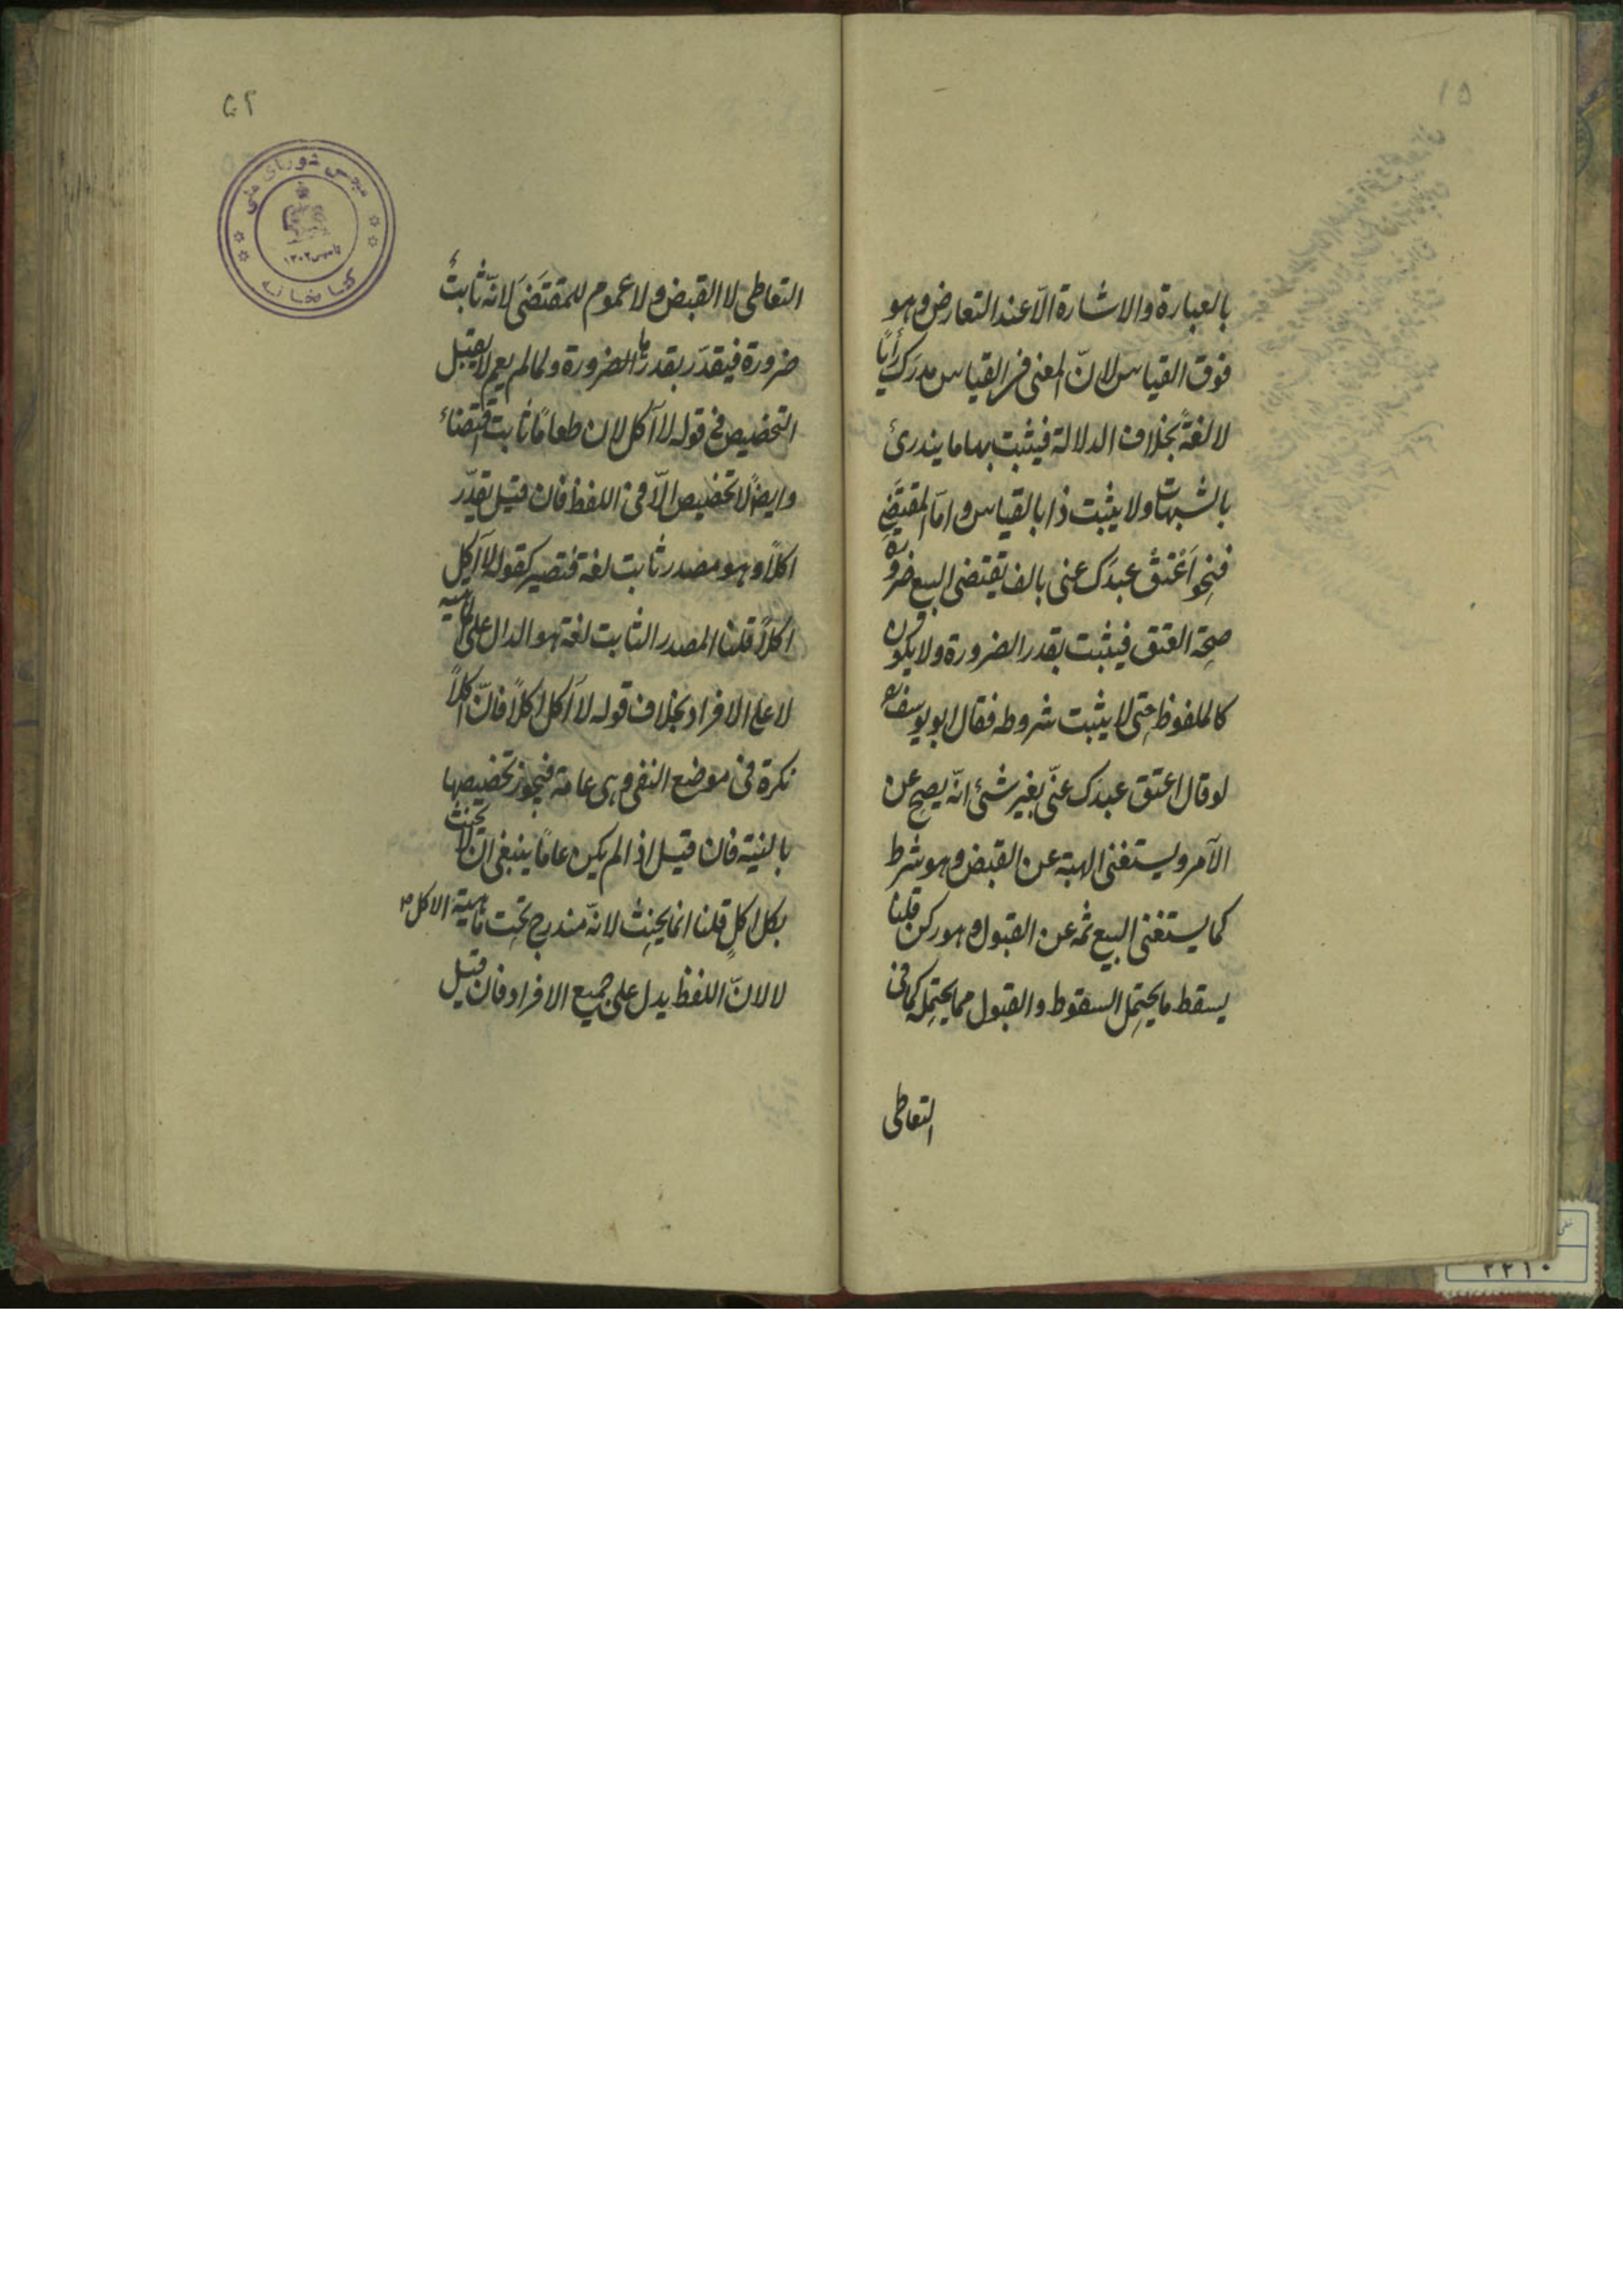 بالعبارة والاشارة الّا عند التعارض وهو
فوق القياس لانّ المعنى فى القياس مدرَك رأيًا
لا لغةً بخلاف الدلالة فيثبت بها ما يندرئ
بالشبهات ولا يثبت ذا بالقياس وامّا المقتضَى
فنحو اَعْتِقْ عبدَك عنى بالف يقتضى البيع ضرورة
صحة العتق فيثبت بقدر الضرورة ولا يكون
كالملفوظ حتى لا يثبت شروطه فقال ابو يوسف
لو قال اعتق عبدَك عنّى بغير شئ انّه يصح عن
الآمر ويستغنى الهبة عن القبض وهو شرط
كما يستغنى البيع ثمه عن القبول وهو ركن قلنا
يسقط ما يحتمل السقوط والقبول مما يحتمله كما فى
التعاطى
٥٢
التعاطى لا القبض ولا عموم للمقتضَى لانّه ثابتٌ
ضرورة فيتقدّر بقدرها الضرورة ولما لم يعم لا يقبل
التخصيص فى قوله لا آكل لان طعامًا ثابت اقتضاءً
وايضًا لا تخصيص الّا فى اللفظ فان قيل تقدّر
اكلًا وهو مصدر ثابت لغة فتصير كقوله لا آكل
اكلًا قلنا المصدر الثابت لغة هو الدال على الماهية
لا على الافراد بخلاف قوله لا آكل اكلًا فانّ اكلًا
نكرة فى موضع النفى وهى عامة فيجوز تخصيصها
بالنية فان قيل اذا لم يكن عامًا ينبغى ان لا يحنث
بكل اكلٍ قلنا انما يحنث لانّه مندرج تحت ماهية الاكل
لا لانّ اللفظ يدل على جميع الافراد فان قيل
مجلس شورای ملی
تاسیس ۱۳۰۲
کتابخانه
٢٢١٠